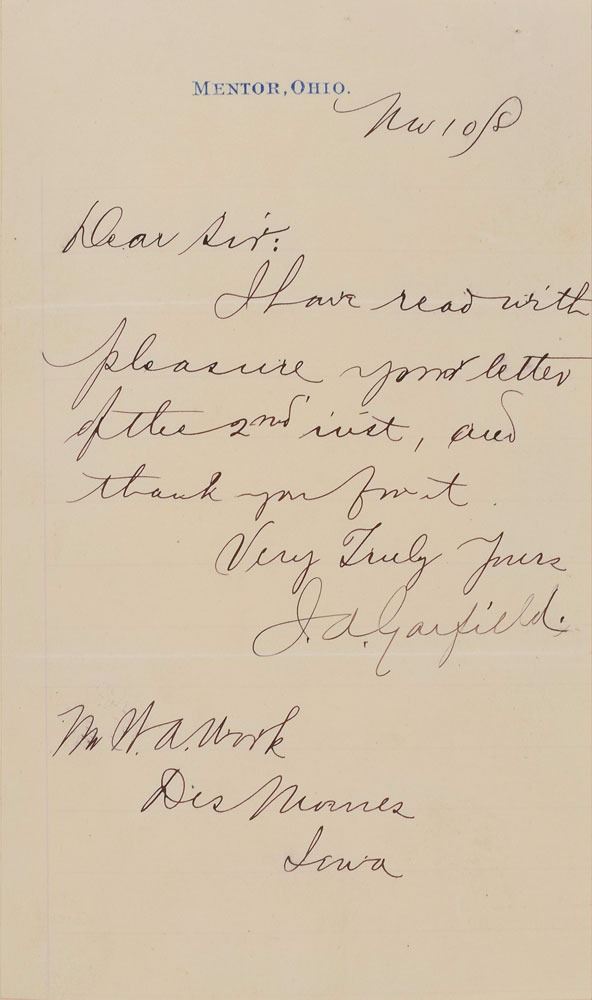 MENTOR, OHIO.
Nov 10/8
Dear Sir:
I have read with
pleasure your letter
of the 2nd inst, and
thank you for it.
Very Truly Yours
J. A. Garfield.
Mr W. A. Work
Des Moines
Iowa